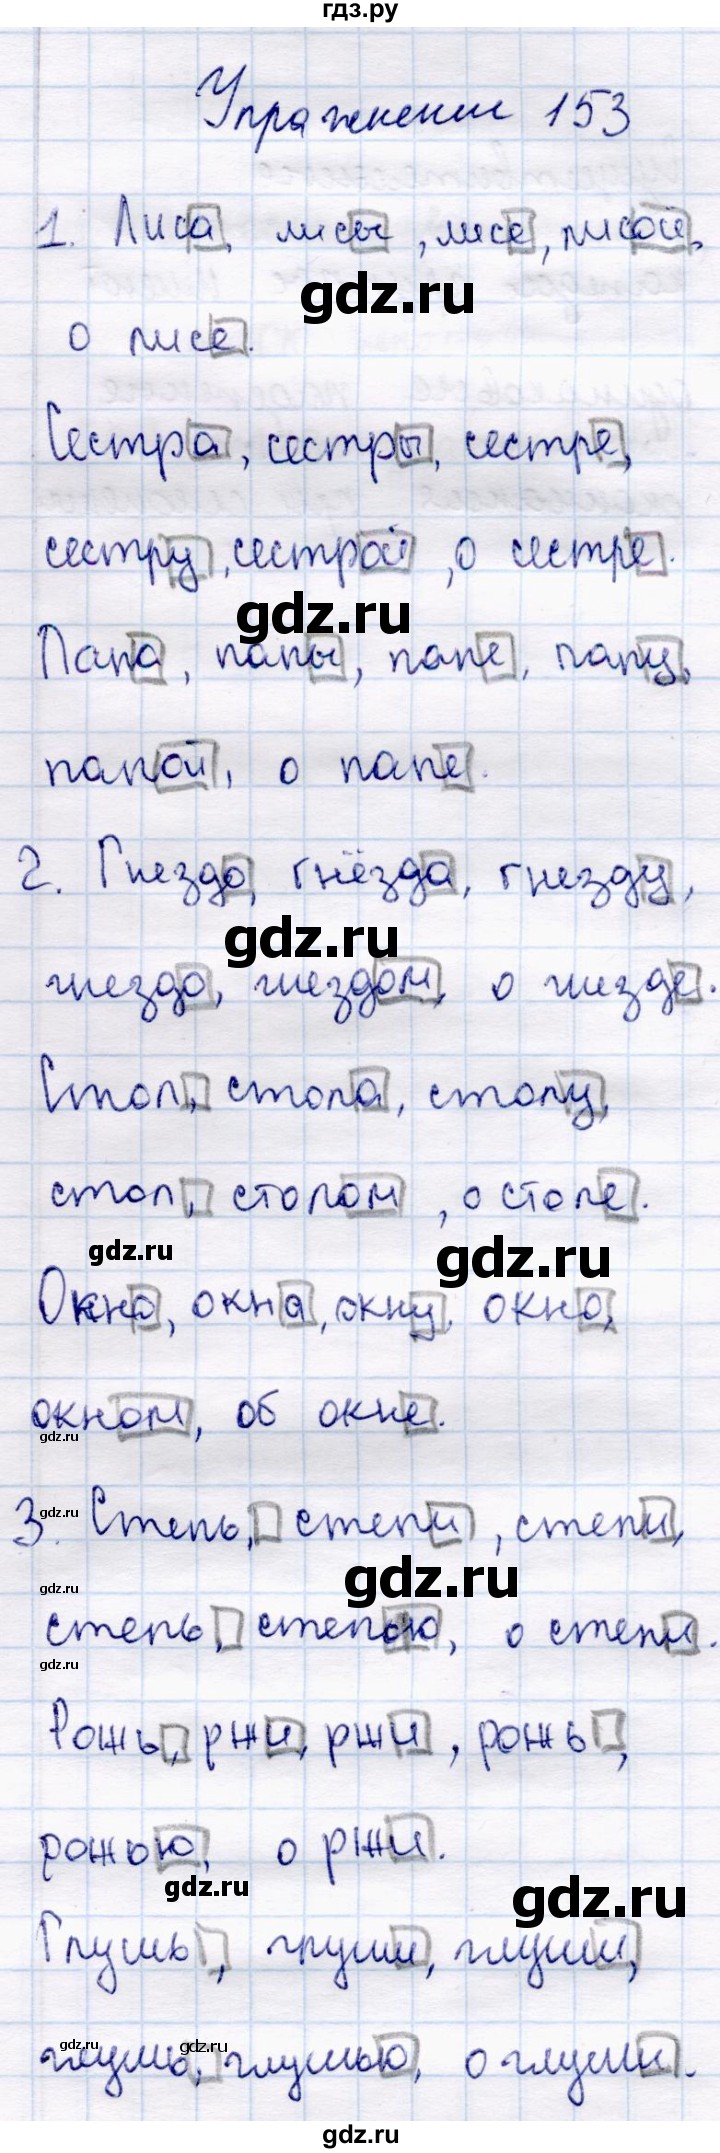 гдз.ру
Упражнение 153
1. Лиса, лисы, лисе, лисой,
gdz.ru
о лисе.
Сестра, сестры, сестре,
сестру, сестрой, о сестре.
gdz.ru
Папа, папы, папе, папу,
папой, о папе.
2. Гнездо, гнёзда, гнезду,
gdz.ru
гнездо, гнездом, о гнезде.
Стол, стола, столу,
стол, столом, о столе.
gdz.ru
gdz.ru
Окно, окна, окну, окно,
окном, об окне.
gdz.ru
gdz.ru
3. Степь, степи, степи,
gdz.ru
gdz.ru
степь, степью, о степи.
gdz.ru
Рожь, ржи, ржи, рожь,
рожью, о ржи.
gdz.ru
gdz.ru
Глушь, глуши, глуши,
gdz.ru
gdz.ru
глушь, глушью, о глуши.
gdz.ru